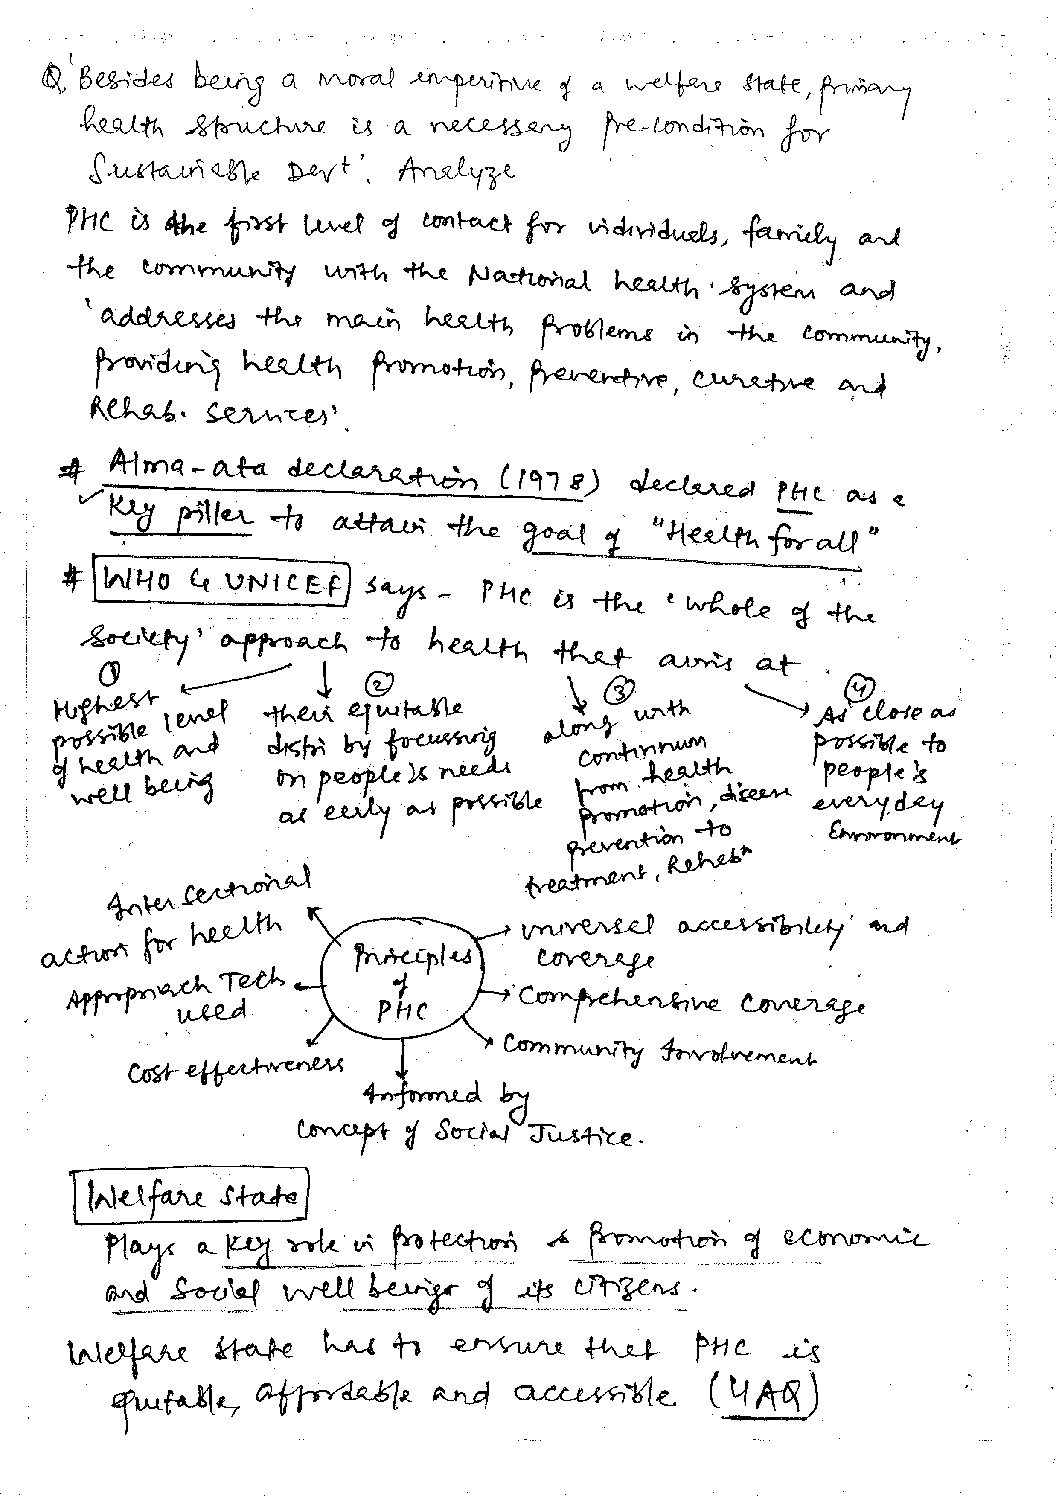 Q. 'Besides being a moral imperitive of a welfare state, primary
health structure is a necessery pre-condition for
Sustainable Devt'. Analyze
PHC is the first level of contact for individuals, family and
the community with the National health system and
'addresses the main health problems in the community,
providing health promotion, preventive, curative and
Rehab. services'.
# Alma-ata declaration (1978) declared PHC as a
✓ Key piller to attain the goal of "Health for all"
# WHO & UNICEF says - PHC is the 'whole of the
society' approach to health that aims at
①
Highest
possible level
of health and
well being
②
their equitable
distri by focussing
on people's needs
as early as possible
③
along with
continnum
from health
promotion, disease
prevention to
treatment, Rehabn
④
As close as
possible to
people's
everyday
Environment
Principles
of
PHC
Inter Sectional
action for health
Appropriach Tech
used
Cost effectiveness
Informed by
concept of Social Justice.
Community Involvement
Comprehensive coverage
universal accessibility and
coverage
Welfare State
Plays a key role in protection & promotion of economic
and social well beings of its citizens.
Welfare state has to ensure that PHC is
quitable, affordable and accessible (4AQ)